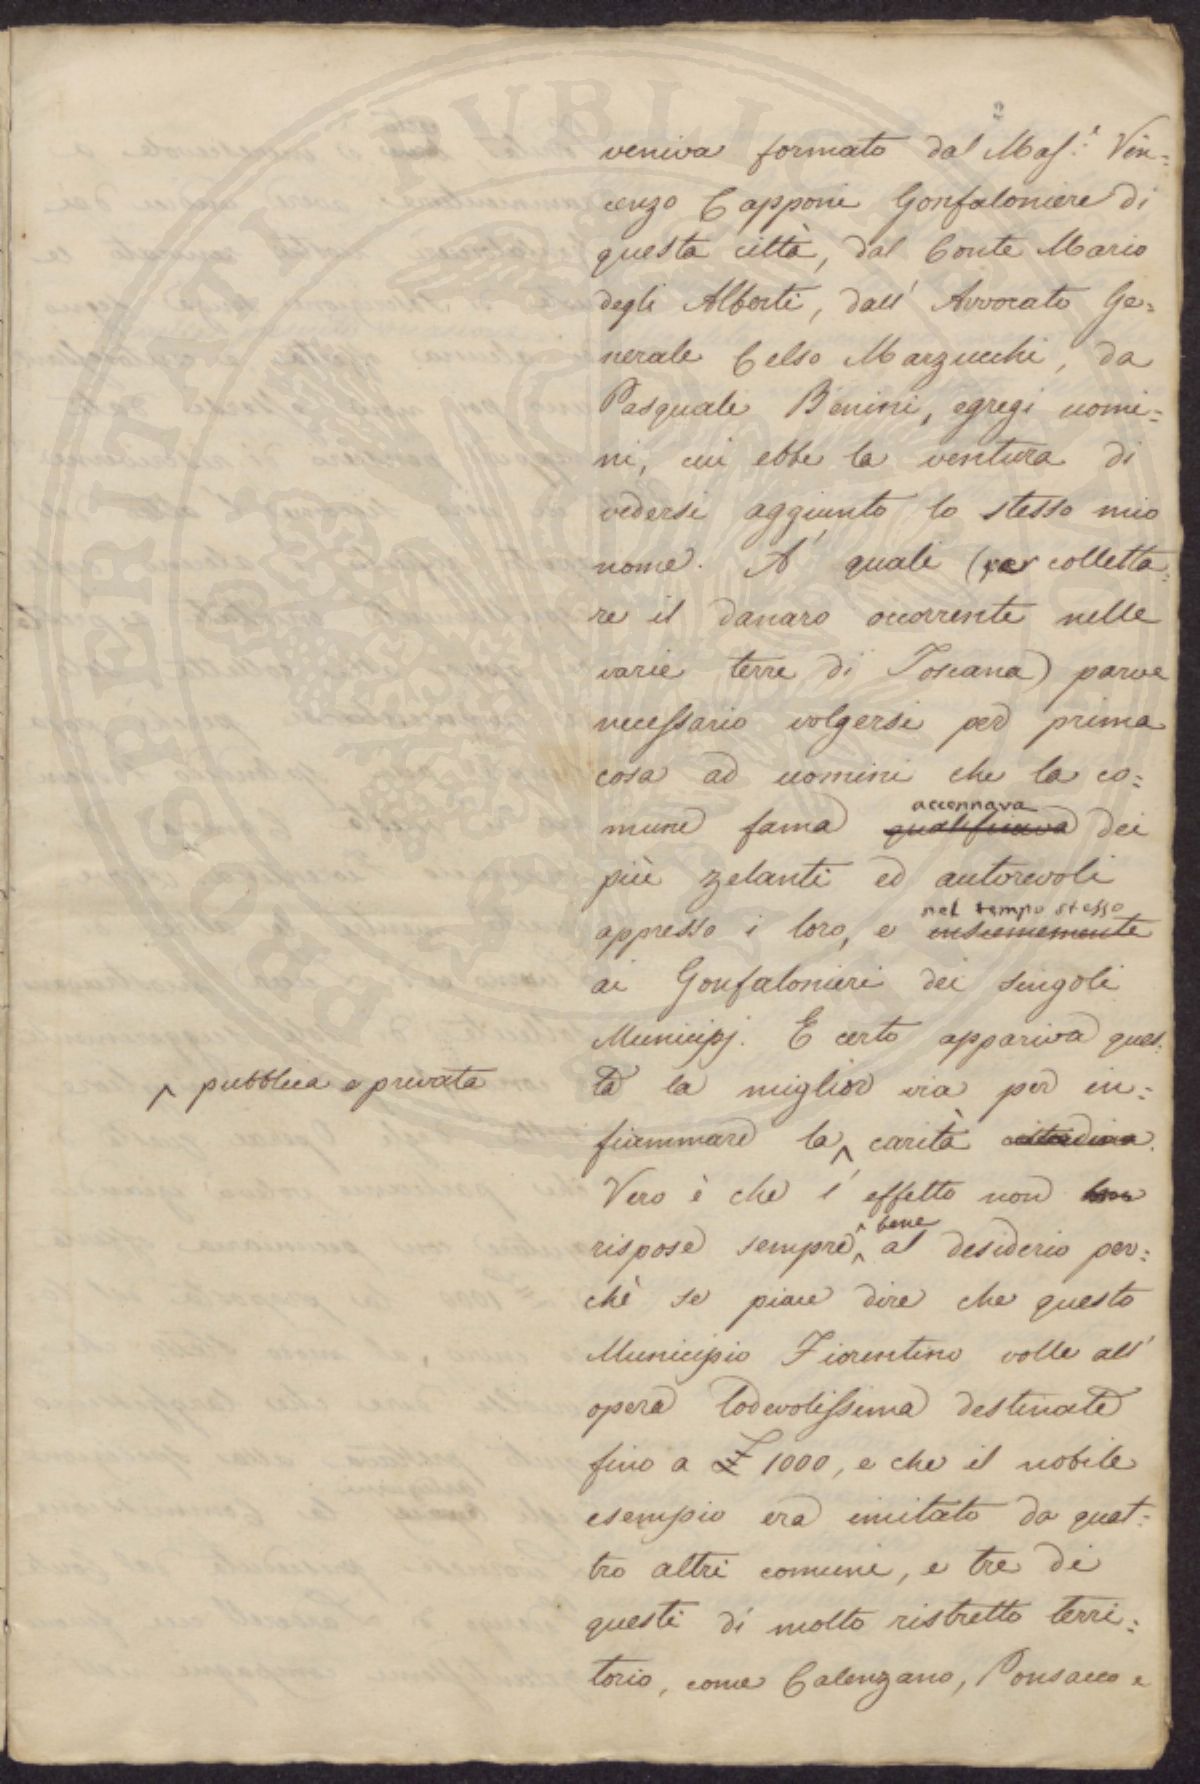 2
veniva formato dal Mas.e Vin=
cenzo Capponi Gonfaloniere di
questa città, dal Conte Mario
degli Alberti, dall' Avvocato Ge=
nerale Celso Marzucchi, da
Pasquale Benini, egregi uomi=
ni, cui ebbe la ventura di
vedersi aggiunto lo stesso mio
nome. A' quali (per colletta=
re il danaro occorrente nelle
varie terre di Toscana) parve
necessario volgersi per prima
cosa ad uomini che la co=
accennava
mune fama qualificava dei
più zelanti ed autorevoli
nel tempo stesso
appresso i loro, e insiememente
ai Gonfalonieri dei singoli
Municipj. E certo appariva ques=
ta la miglior via per in=
pubblica e privata
fiammare la carità cittadina.
Vero è che l'effetto non ben
bene
rispose sempre, al desiderio per=
chè se piace dire che questo
Municipio Fiorentino volle all'
opera lodevolissima destinate
fino a £ 1000, e che il nobile
esempio era imitato da quat=
tro altri comuni, e tre di
questi di molto ristretto terri=
torio, come Calenzano, Ponsacco e
PROSPERITATI PUBLICAE